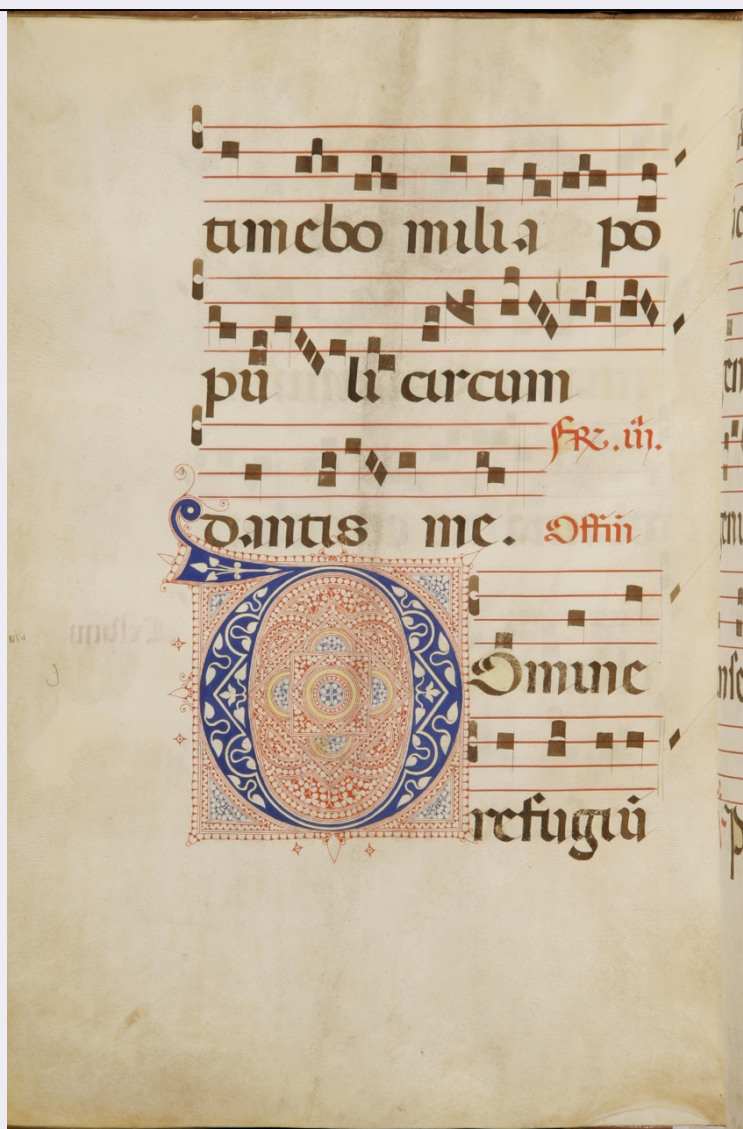 timebo milia po
pu li circum
FR. iii.
dantis me. Offm
Domine
refugiū